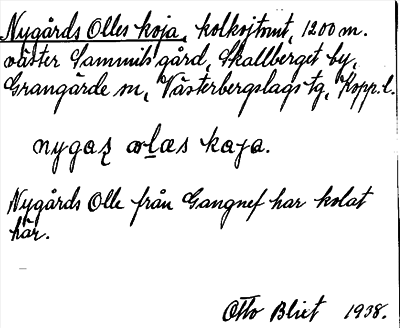 Nygårds Olles koja, kolkojtomt, 1200 m.
väster Sammils gård, Skallberget by,
Grangärde sn, Västerbergslags tg, Kopp. l.
nygaʂ ɷlas kaja.
Nygårds Olle från Gangnef har kolat
här.
Otto Blixt 1938.